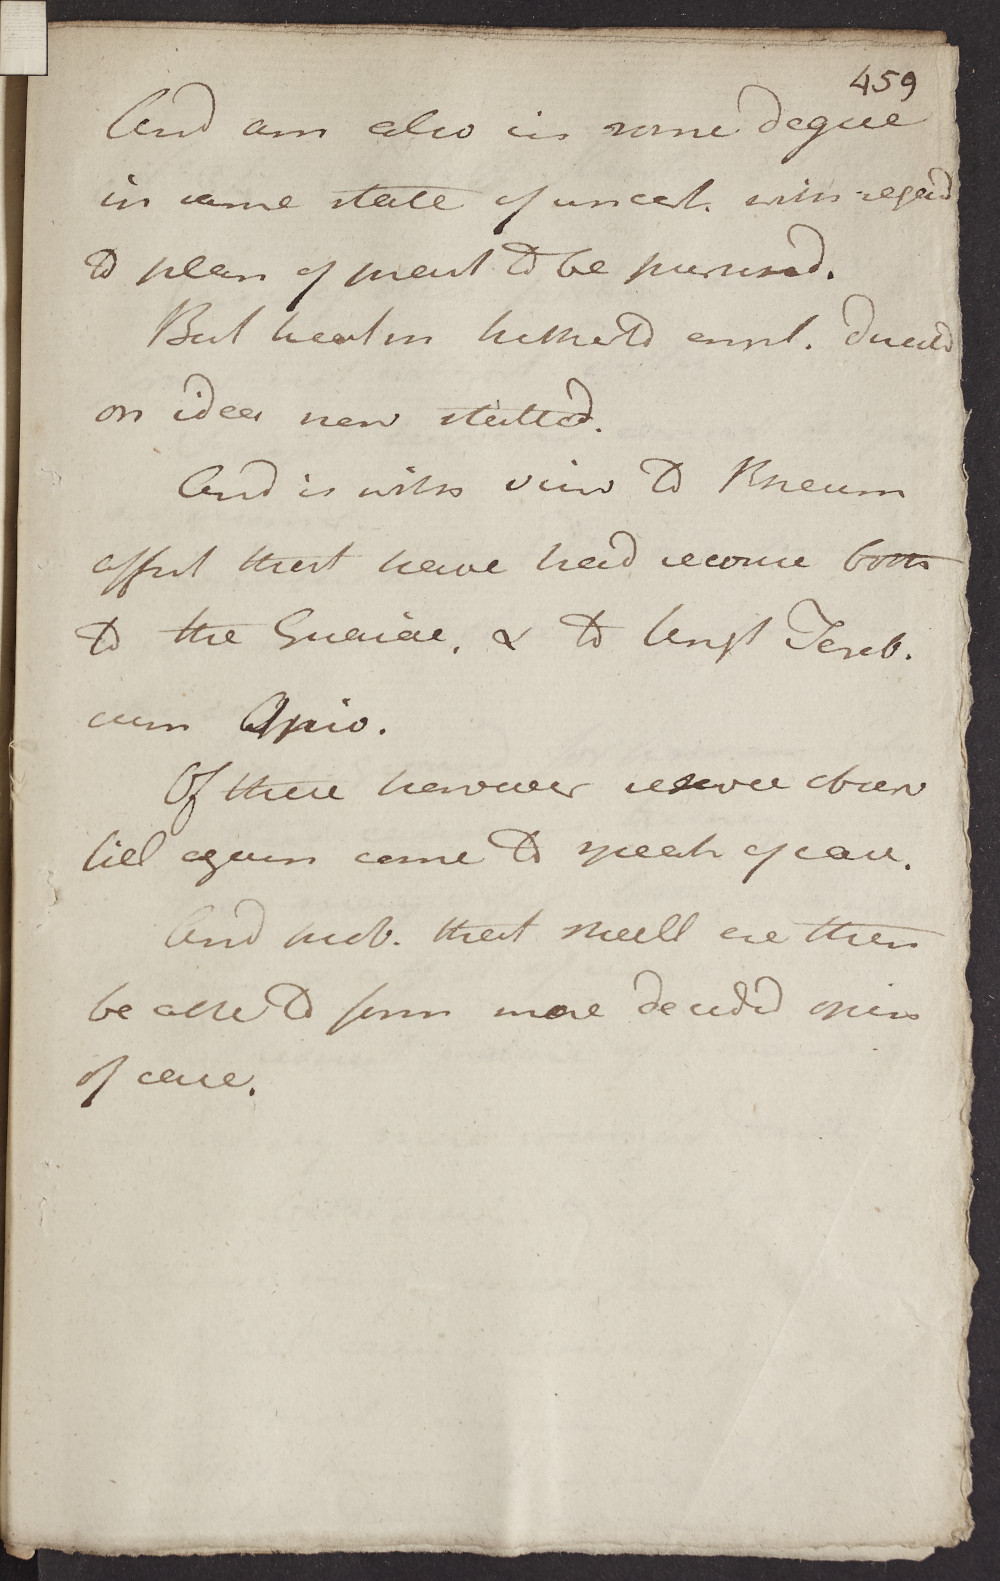 459
And am also in some degree
in same state of uncert. with regard
to plan of pract to be pursued.
But treatm hitherto empl. directed
on idea now stated.
And is with view to Rheum
affect that have had recourse both
to the Guaiac, & to Ungt Tereb.
cum Opio.
Of these however reserve observ
till again come to speak of case.
And prob. that shall ere then
be able to form more decided opin
of case.